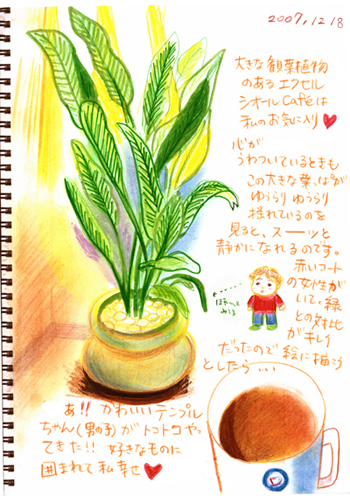 2007,12.18
大きな観葉植物
のあるエクセル
シオールCaféは
私のお気に入り♥
心が
うわついているときも
この大きな葉っぱが
ゆうらり ゆうらり
揺れているのを
見ると、スーッと
静かになれるのです。
赤いコート
の女性が
いて、緑
との対比
がキレイ
だったので 絵に描こう
としたら...
あ!! かわいい テンプル
ちゃん(男の子)が トコトコやっ
てきた!! 好きなものに
囲まれて 私 幸せ♥